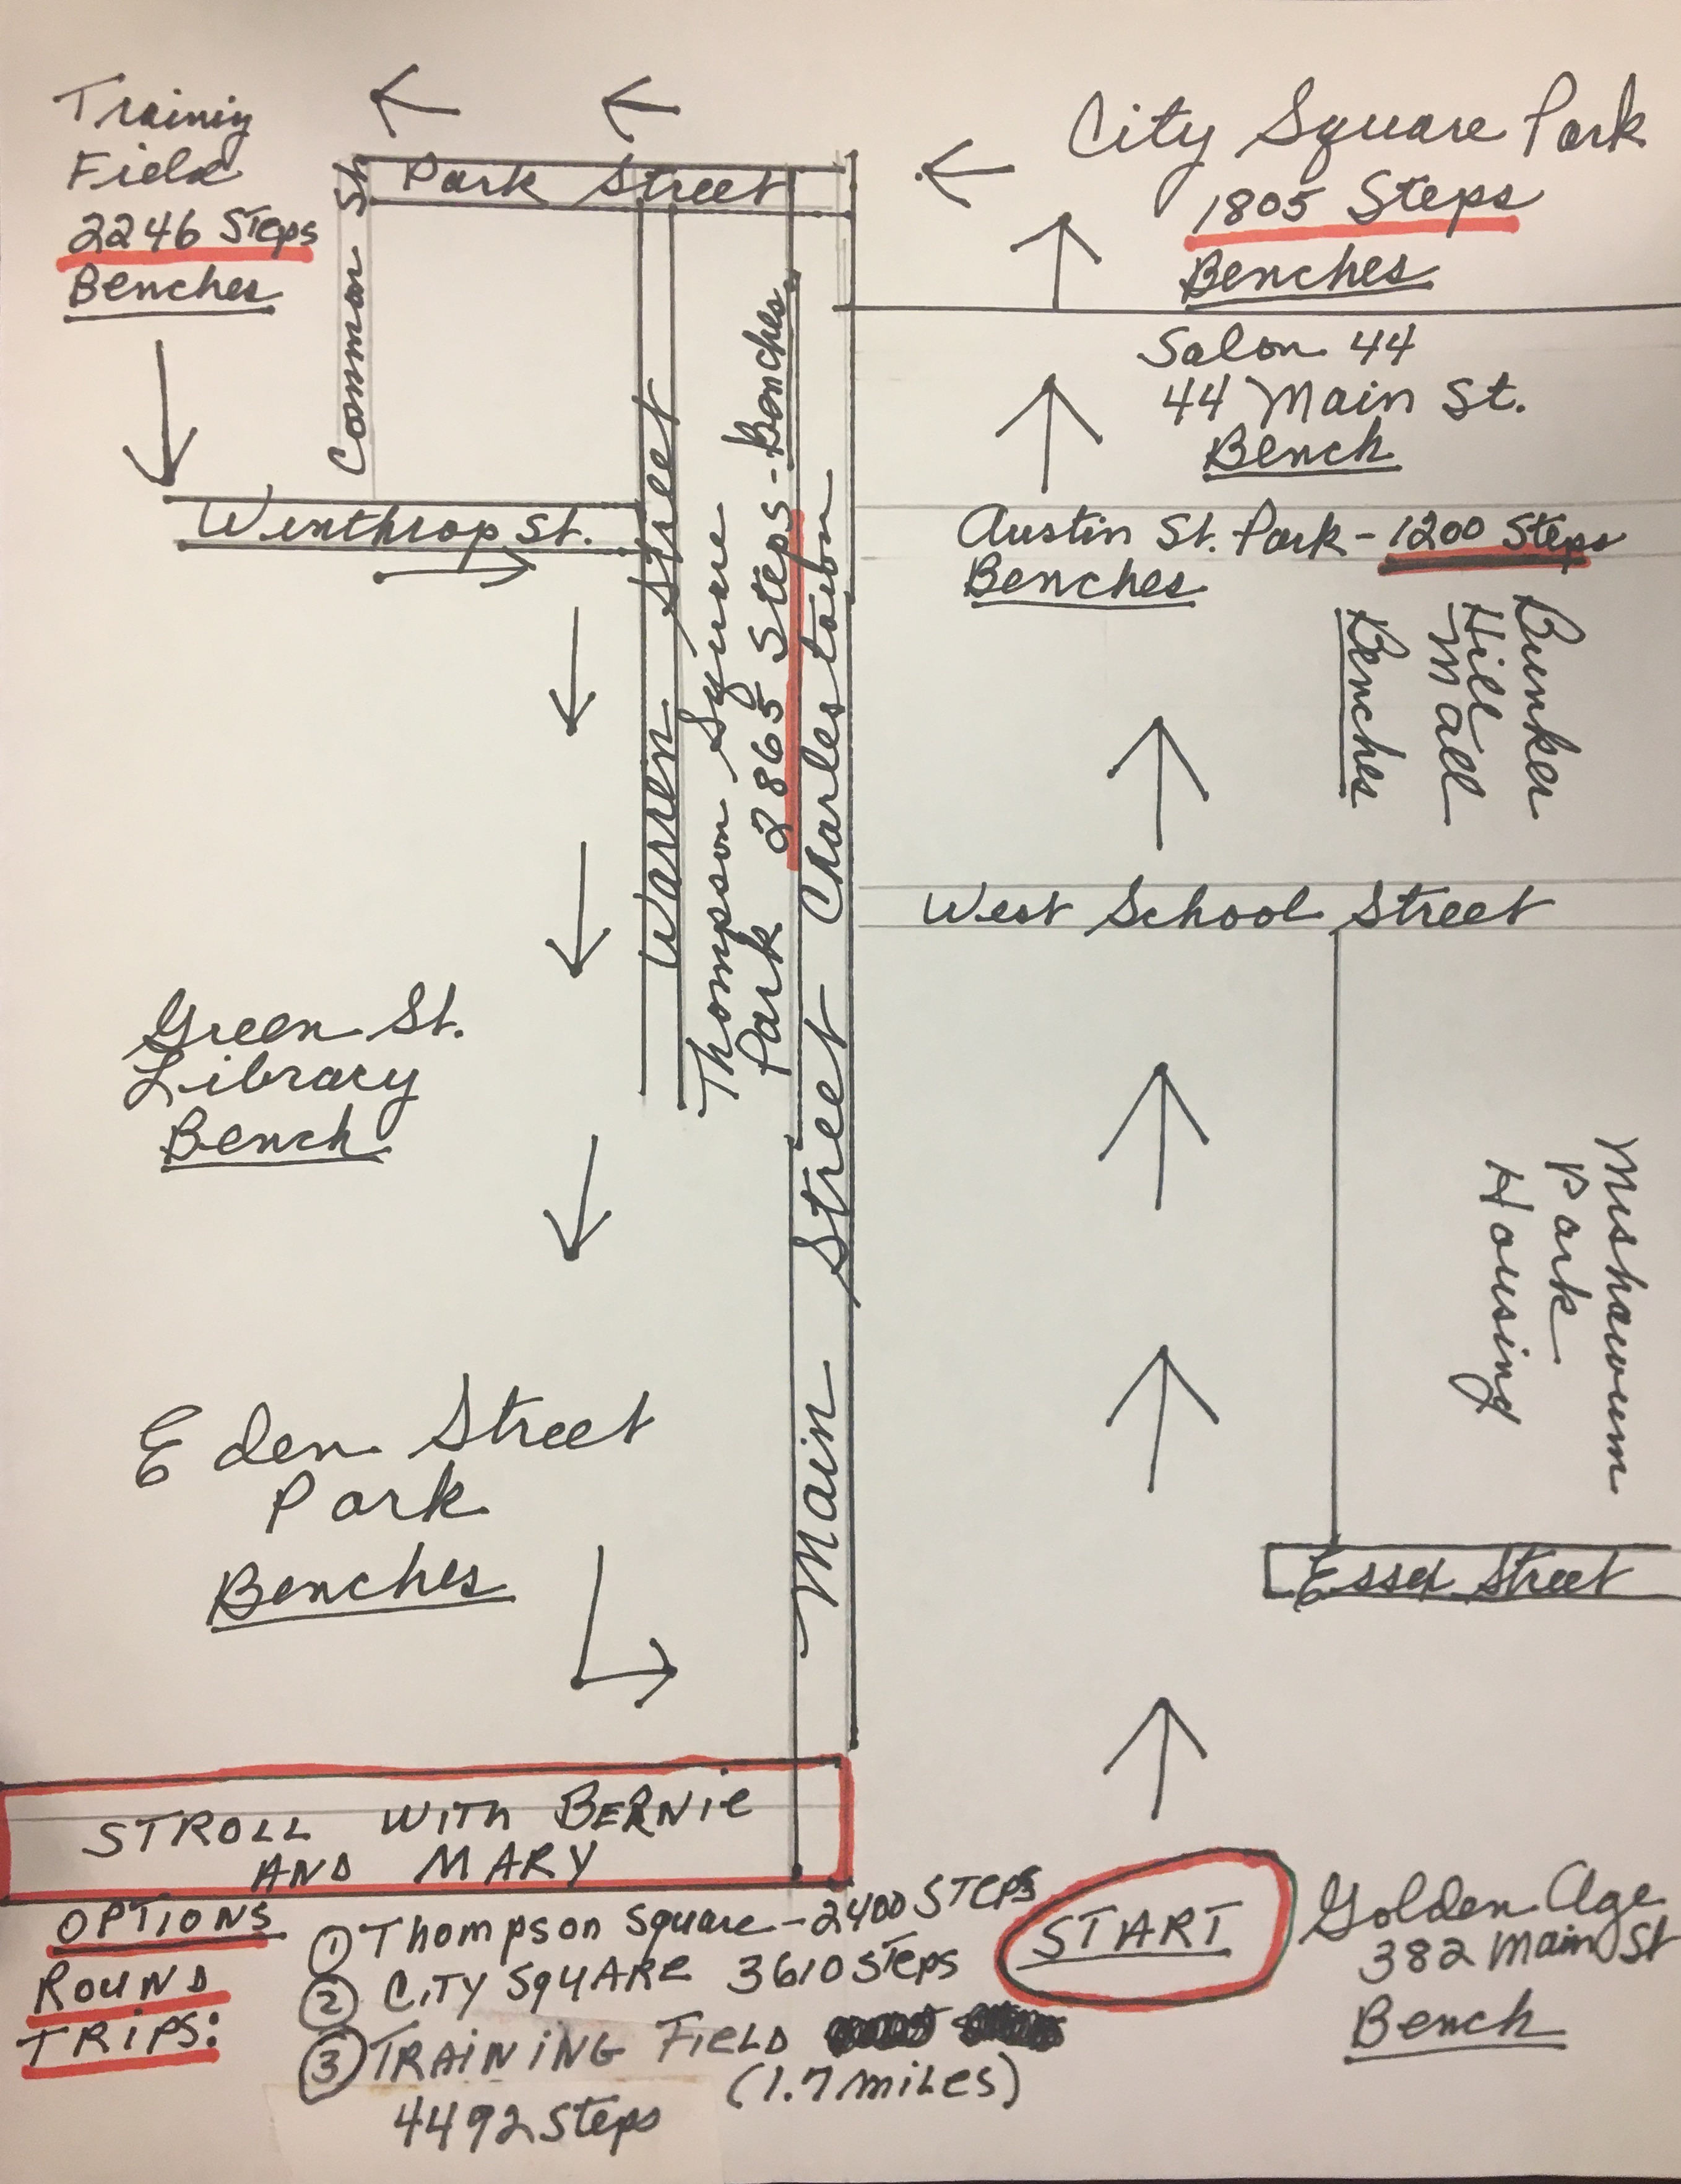 Training
Field
2246 Steps
Benches
Common St
Park Street
City Square Park
1805 Steps
Benches
Salon 44
44 Main St.
Bench
Winthrop St.
Warren Street
Thompson Square
Park 2865 Steps - Benches
Main Street Charlestown
Austin St. Park - 1200 Steps
Benches
Bunker
Hill
Mall
Benches
West School Street
Green St.
Library
Bench
Mishawum
Park
Housing
Eden Street
Park
Benches
Essex Street
STROLL WITH BERNIE
AND MARY
OPTIONS
ROUND
TRIPS:
① Thompson Square - 2400 STEPS
② CITY SQUARE 3610 STEPS
③ TRAINING FIELD
(1.7 MILES)
4492 Steps
START
Golden Age
382 Main St
Bench